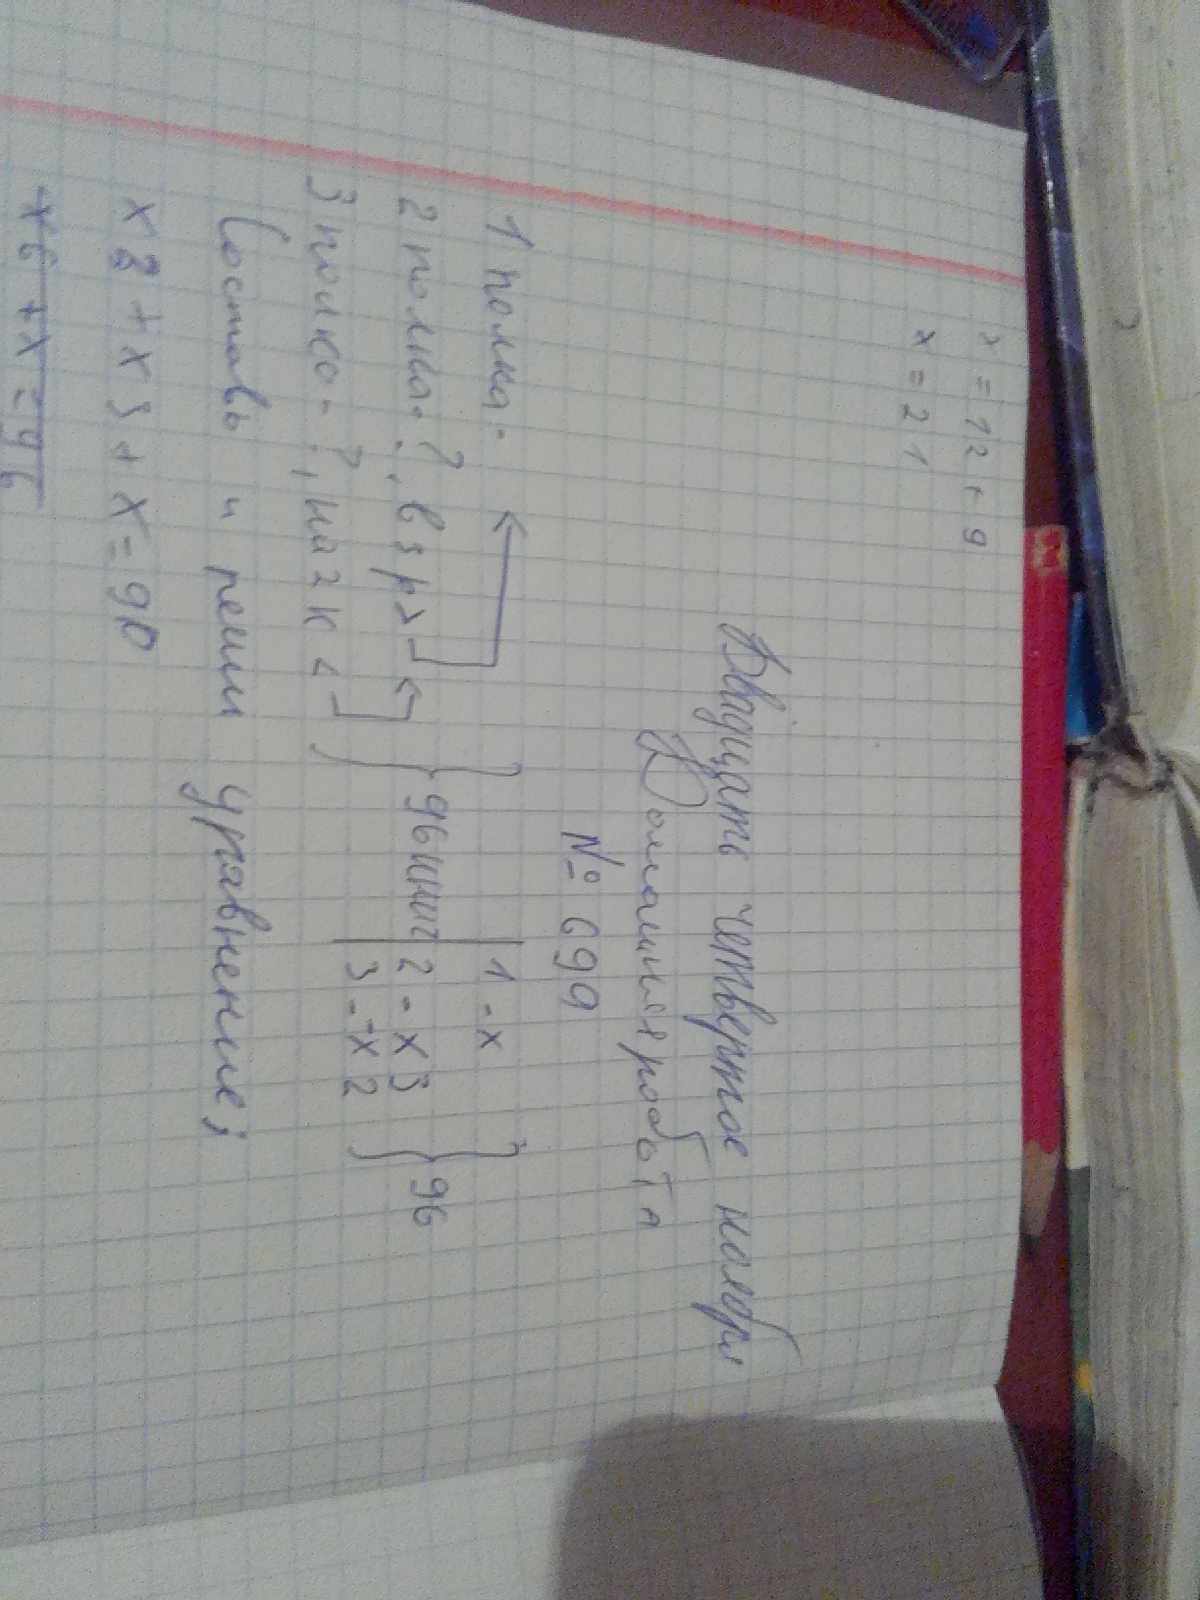 = 12 + 9
x = 21
Двадцать четвертое ноября
Домашняя работа
№ 699
1 полка -
2 полка - ?, в 3 р >
3 полка - ?, на 2 к <
96 книг
1 - x
2 - x 3
3 - x 2
96
Составь и реши уравнение;
+ x 3 + x = 90
x 6 + x = 96